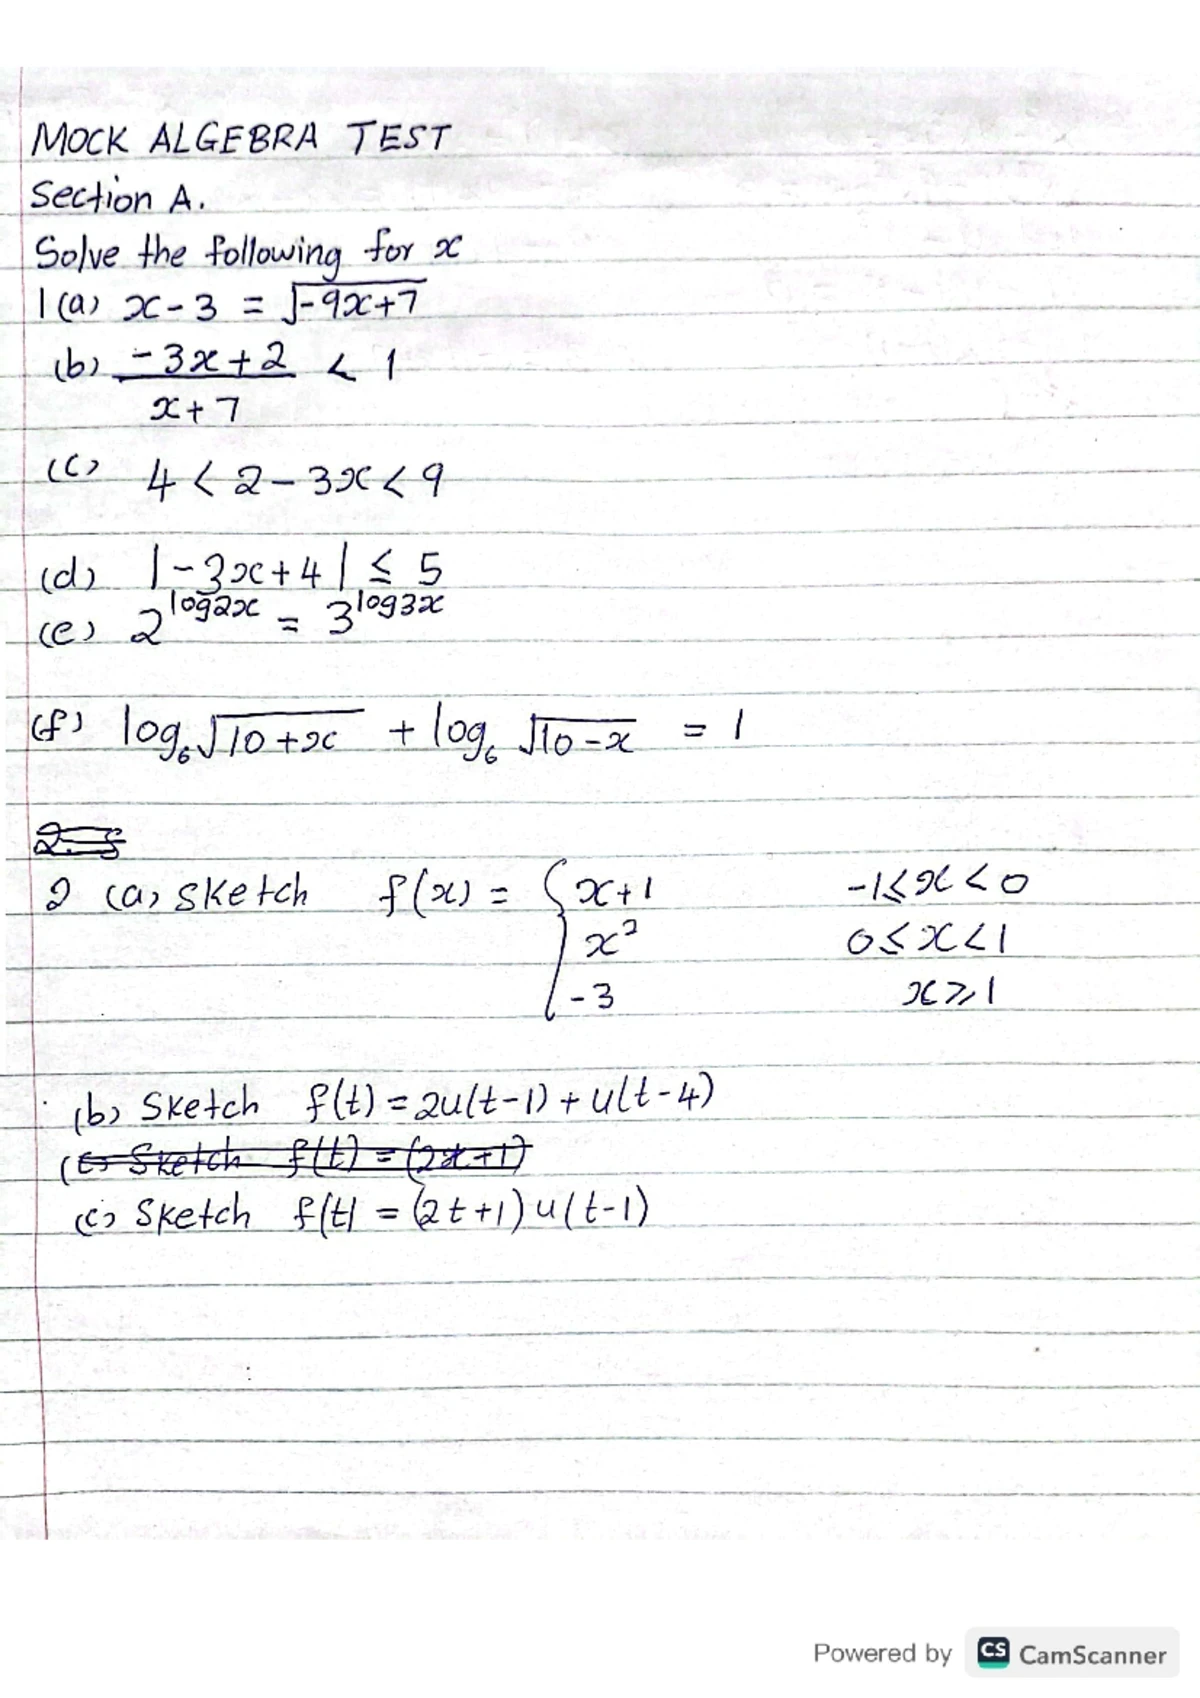 MOCK ALGEBRA TEST
Section A.
Solve the following for x
1(a) x - 3 = √(-9x+7)
(b) (-3x+2)/(x+7) < 1
(c) 4 < 2 - 3x < 9
(d) |-3x+4| ≤ 5
(e) 2^(log2x) = 3^(log3x)
(f) log₆√(10+x) + log₆√(10-x) = 1
2 (a) Sketch f(x) = { x+1 -1≤x<0
x² 0≤x<1
-3 x≥1
(b) Sketch f(t) = 2u(t-1) + u(t-4)
(c) Sketch f(t) = (2x+1)
(c) Sketch f(t) = (2t+1)u(t-1)
Powered by CS CamScanner